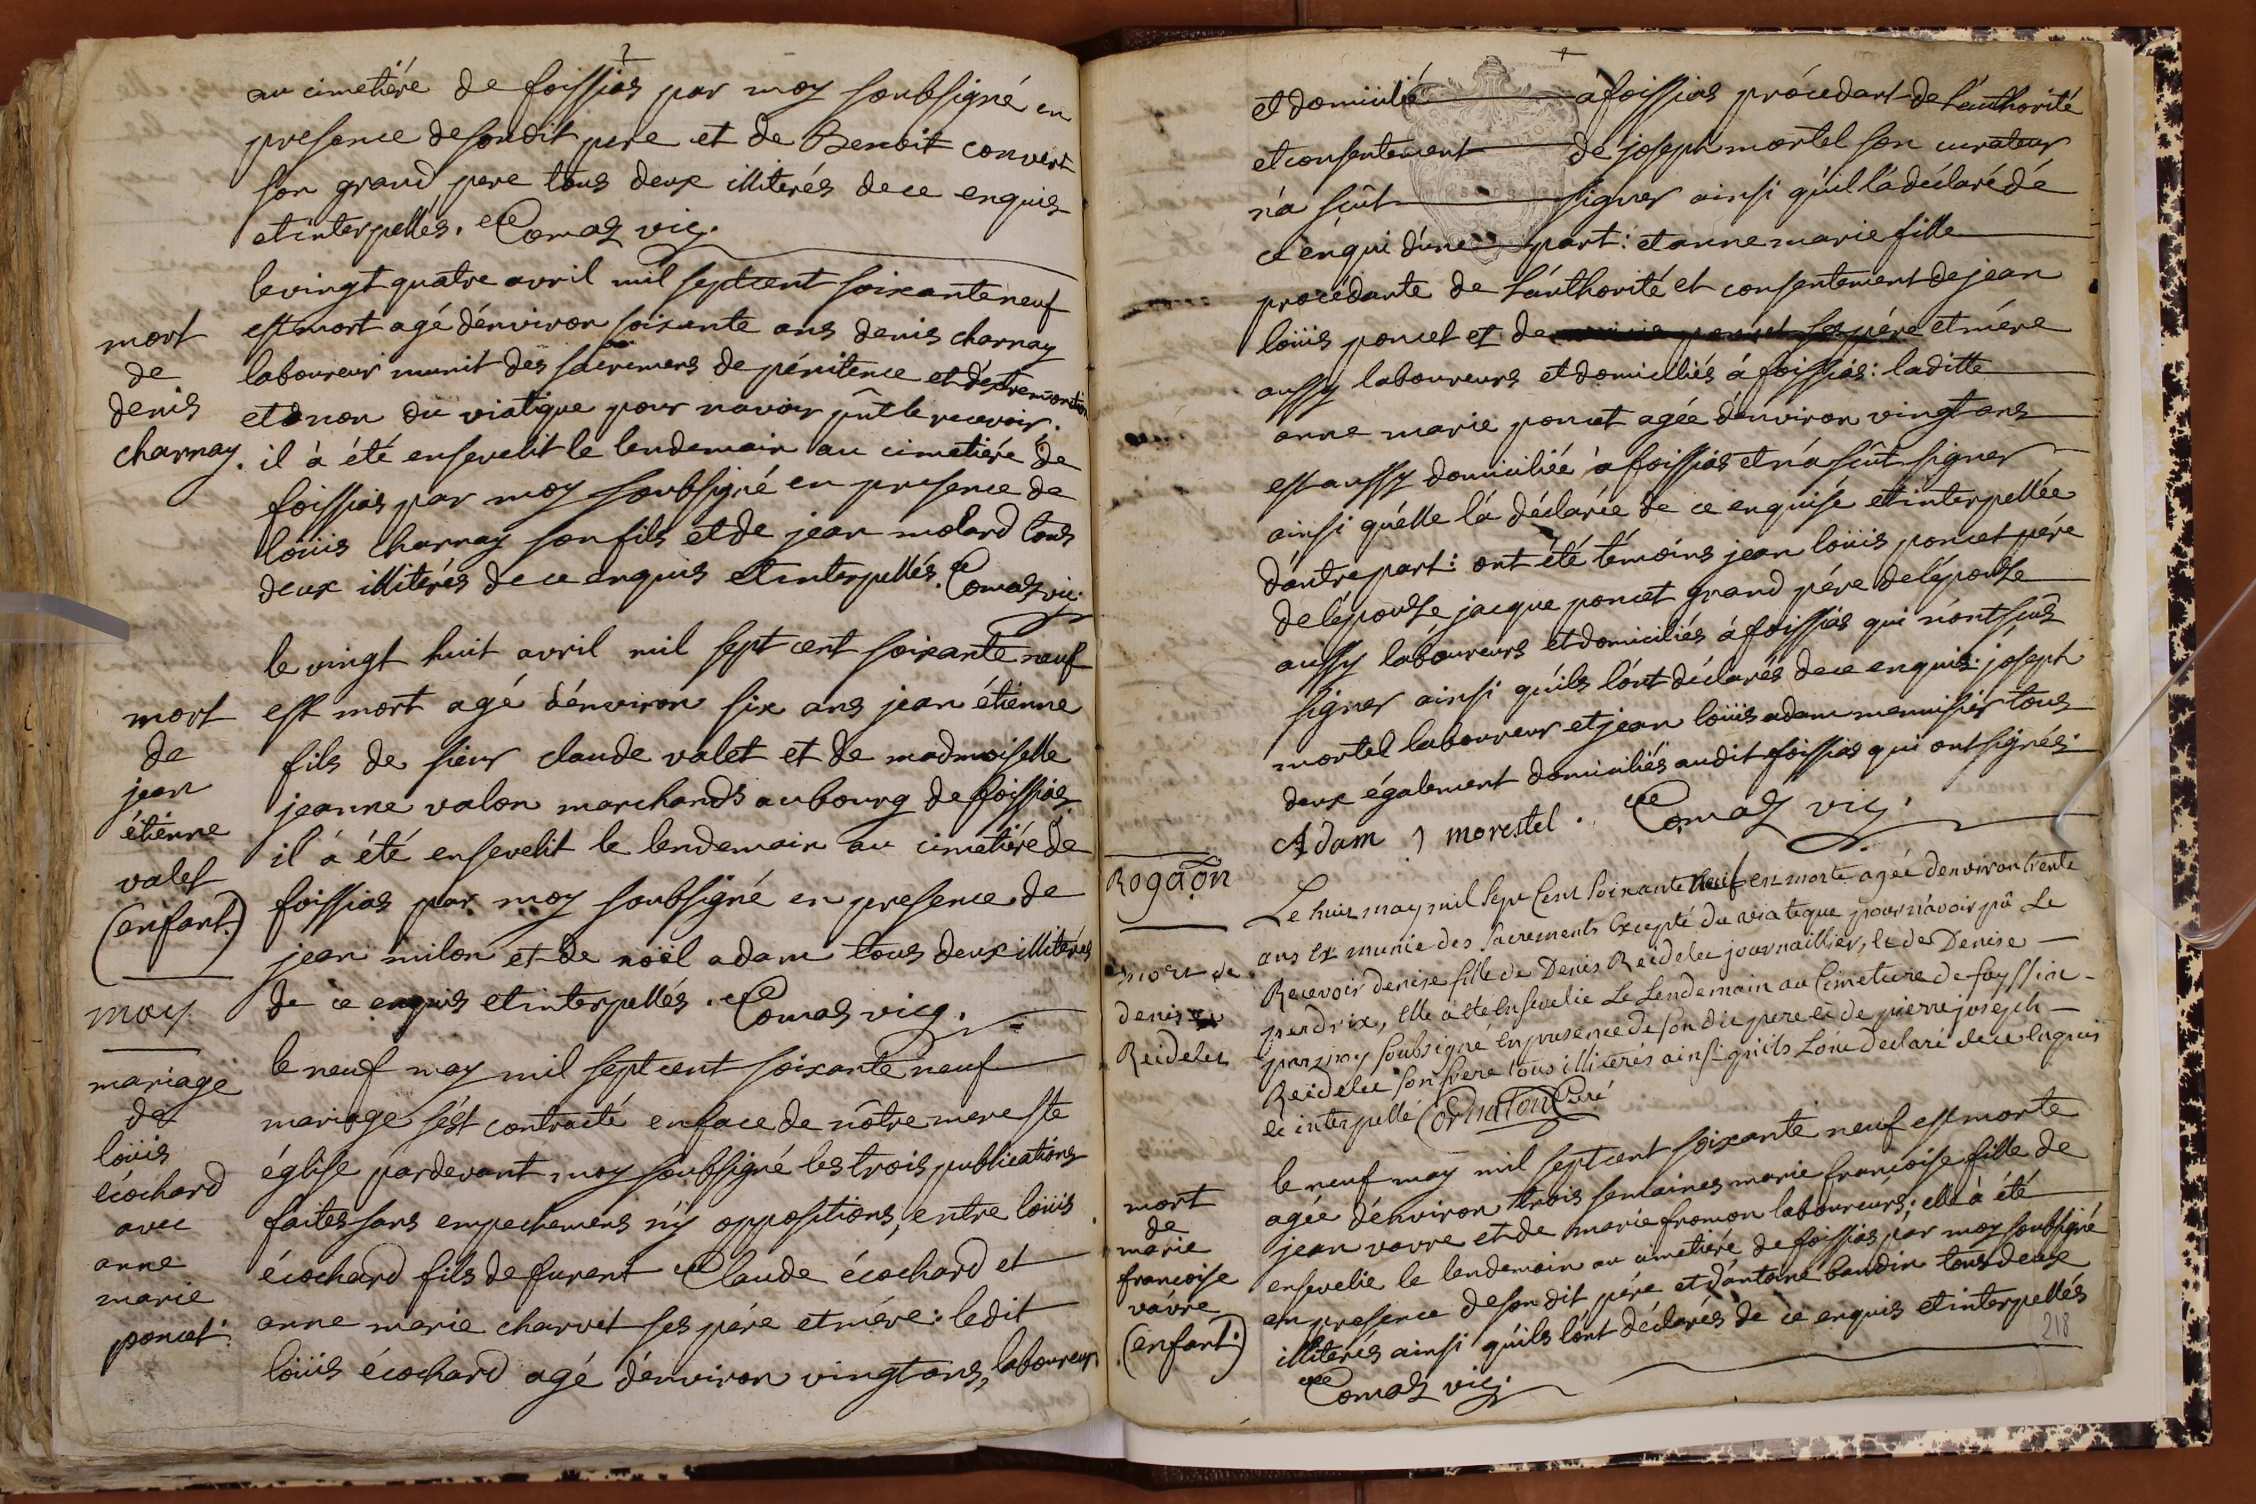 au cimetiére de foissias par moy soubsigné en
presence de son dit pere et de Benoit convert
son grand pere tous deux illiterés de ce enquis
et interpellés. Comas vic.
le vingt quatre avril mil sept cent soixante neuf
est mort agé d'environ soixante ans denis charnay
laboureur munit des sacremens de pénitence et d'extremontion
et non du viatique pour n'avoir pût le recevoir.
il à été ensevelit le lendemain au cimetiére de
foissias par moy soubsigné en presence de
loüis charnay son fils et de jean molard tous
deux illiterés de ce enquis et interpellés. Comas vic.
mort
de
denis
charnay.
le vingt huit avril mil sept cent soixante neuf
est mort agé d'environ six ans jean étienne
fils de sieur claude valet et de madmoiselle
jeanne valon marchands au bourg de foissias
il à été ensevelit le lendemain au cimetiére de
foissias par moy soubsigné en presence de
jean milon et de noël adam tous deux illiterés
de ce enquis et interpellés. Comas vic.
mort
de
jean
étienne
valet
(enfant.)
may
le neuf may mil sept cent soixante neuf
mariage s'est contracté en face de nôtre mere ste
église pardevant moy soubsigné les trois publications
faites sans empechemens n'y oppositions, entre loüis
écochard fils de furent Claude écochard et
anne marie charvet ses pére et mére: ledit
loüis écochard agé d'environ vingt ans, laboureur
mariage
de
loüis
écochard
avec
anne
marie
poncet.
et domicilié à foissias procedant de l'authorité
et consentement de joseph mortel son curateur
n'a scût signer ainsi qu'il l'a déclaré de
ce enqui d'une part: et anne marie fille
procedante de l'authorité et consentement de jean
loüis poncet et de et mére
aussy laboureurs et domiciliés à foissias: laditte
anne marie poncet agée d'environ vingt ans
est aussy domiciliée à foissias et n'a scût signer
ainsi qu'elle l'a déclarée de ce enquise et interpellée
d'autre part: ont été témoins jean loüis poncet pére
de l'épouse jacque poncet grand pére de l'épouse
aussy laboureurs et domiciliés à foissias qui n'ont scûs
signer ainsi qu'ils l'ont déclarés de ce enquis: joseph
mortel laboureur et jean loüis adam menuisier tous
deux également domiciliés audit foissias qui ont signés.
Adam J morestel. Comas vic.
Rogaõn
Le huit may mil Sept Cent Soixante Neuf est morte agée denviron trente
ans et munie des Sacrements Excepté du viatique pour n'avoir pû Le
Recevoir denise fille de Denis Reidelet journaillier, et de Denise
perdrix, Elle a eté Ensevelie Le Lendemain au Cimetiere de foyssia
par moy Soubsigné En presence de son dit pere et de pierre joseph
Reidelet son frere tous illiterés ainsi qu'ils L'ont declaré de ce Enquis
et interpellé Curé
mort de
denise
Reidelet
le neuf may mil sept cent soixante neuf est morte
agée d'environ trois semaines marie françoise fille de
jean vavre et de marie fromon laboureurs; elle à été
ensevelie le lendemain au cimetiére de foissias par moy soubsigné
en presence de son dit pére et d'antoine baudin tous deux
illiterés ainsi qu'ils l'ont déclarés de ce enquis et interpellés
Comas vic.
mort
de
marie
françoise
vavre
(enfant.)
218